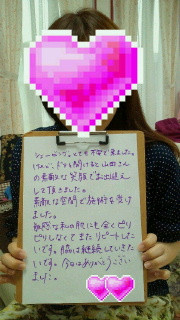 シェービング、とても不安で来ました。
けれど、ドアを開けると山田さん
の素敵な笑顔でお出迎え
して頂きました。
素敵な空間で施術を受
けました。
敏感な私の肌にも全くピリ
ピリしなくてまたリピートした
いです。脇は継続していきた
いです。今日はありがとうござい
ます!!